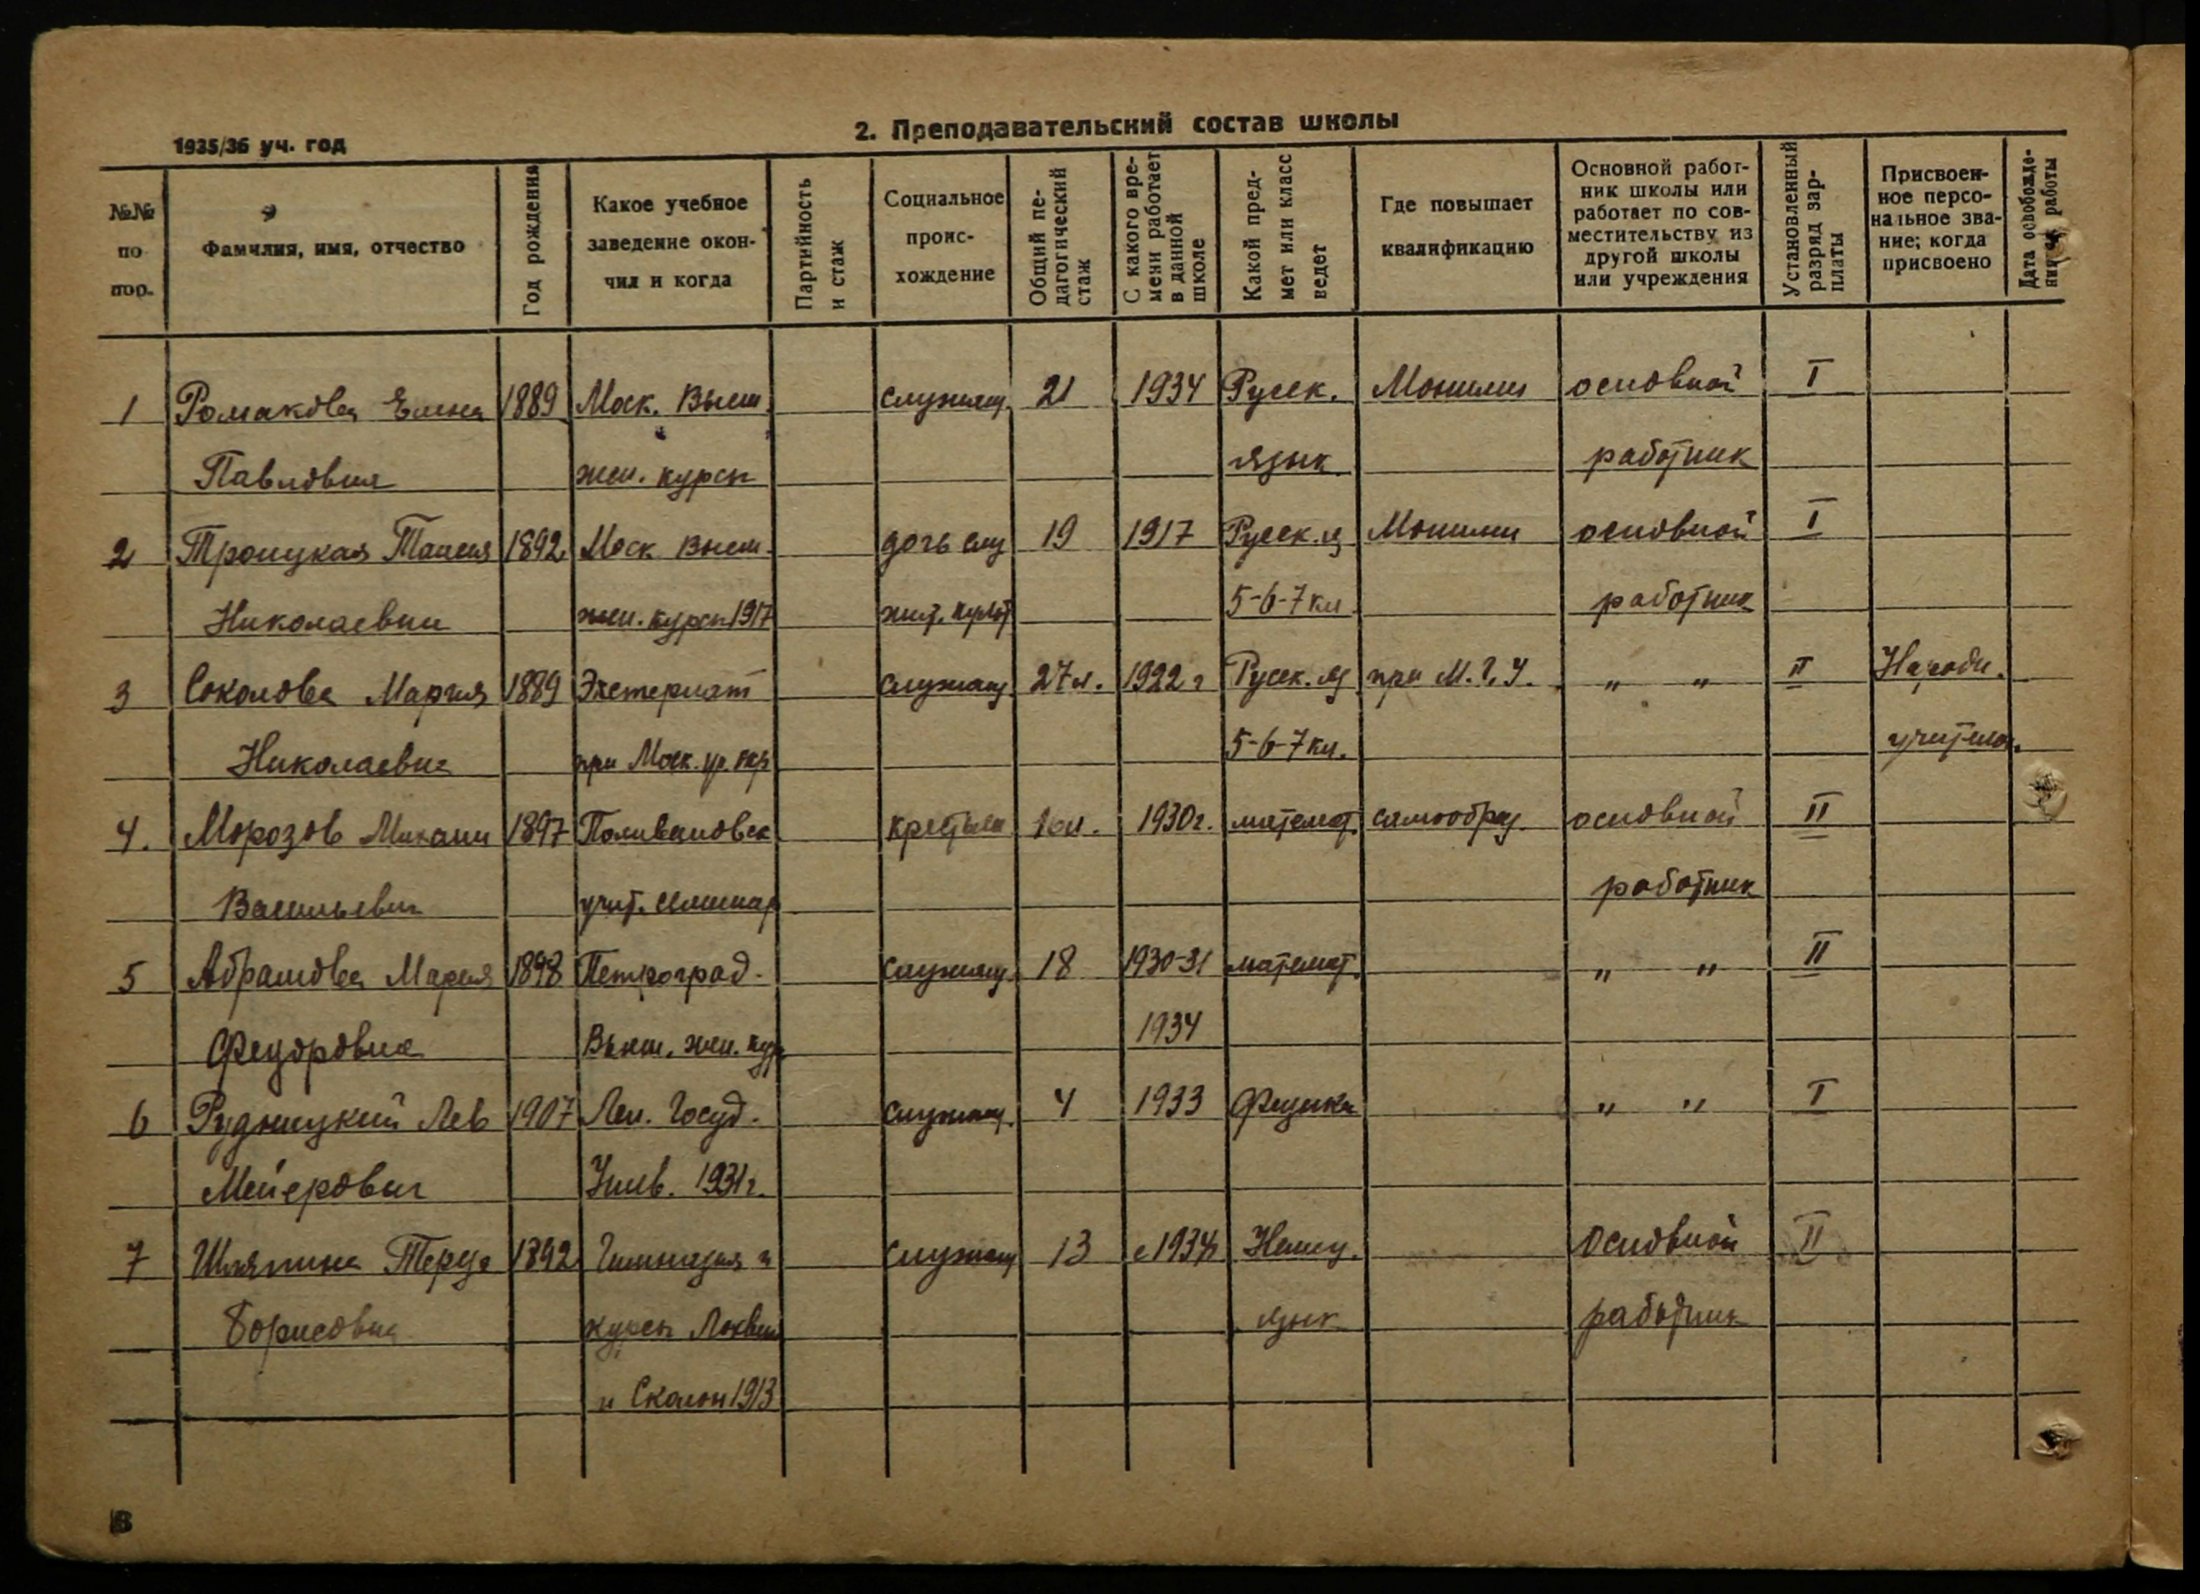 1935/36 уч. год
2. Преподавательский состав школы
№№ по пор.
Фамилия, имя, отчество
Год рождения
Какое учебное заведение окончил и когда
Партийность и стаж
Социальное проис-хождение
Общий пе-дагогический стаж
С какого вре-мени работает в данной школе
Какой пред-мет или класс ведет
Где повышает квалификацию
Основной работ-ник школы или работает по сов-местительству из другой школы или учреждения
Установленный разряд зар-платы
Присвоен-ное персо-нальное зва-ние; когда присвоено
Дата освобожде-ния работы
1 Ромакова Елена 1889 Моск. Высш. служащ. 21 1934 Русск. основной I
Павловна жен. курсы язык работник
2 Троицкая Таисия 1892 Моск Высш. дочь служ 19 1917 Русск. яз основной I
Николаевна жен. курсы 1917 5-6-7 кл работник
3 Соколова Мария 1889 Экстернат служащ 27 л. 1922 г Русск. яз при М.Г.У. " " II Народн.
Николаевна при Моск. 5-6-7 кл. учителя.
4. Морозов Михаил 1897 Поливановск крестьян 16 л. 1930 г. математ. самообраз. основной II
Васильевич учит. семинар работник
5 Абрамова Мария 1898 Петроград. служащ. 18 1930-31 математ. " " II
Федоровна Высш. жен. кур 1934
6 Рудницкий Лев 1907 Лен. Госуд. служащ. 4 1933 Физика " " I
Мейерович Унив. 1931 г.
7 Шляпина 1892 Гимназия и служащ 13 с 1934 Немец. Основной II
Борисовна курсы язык работник
и Скалон 1913